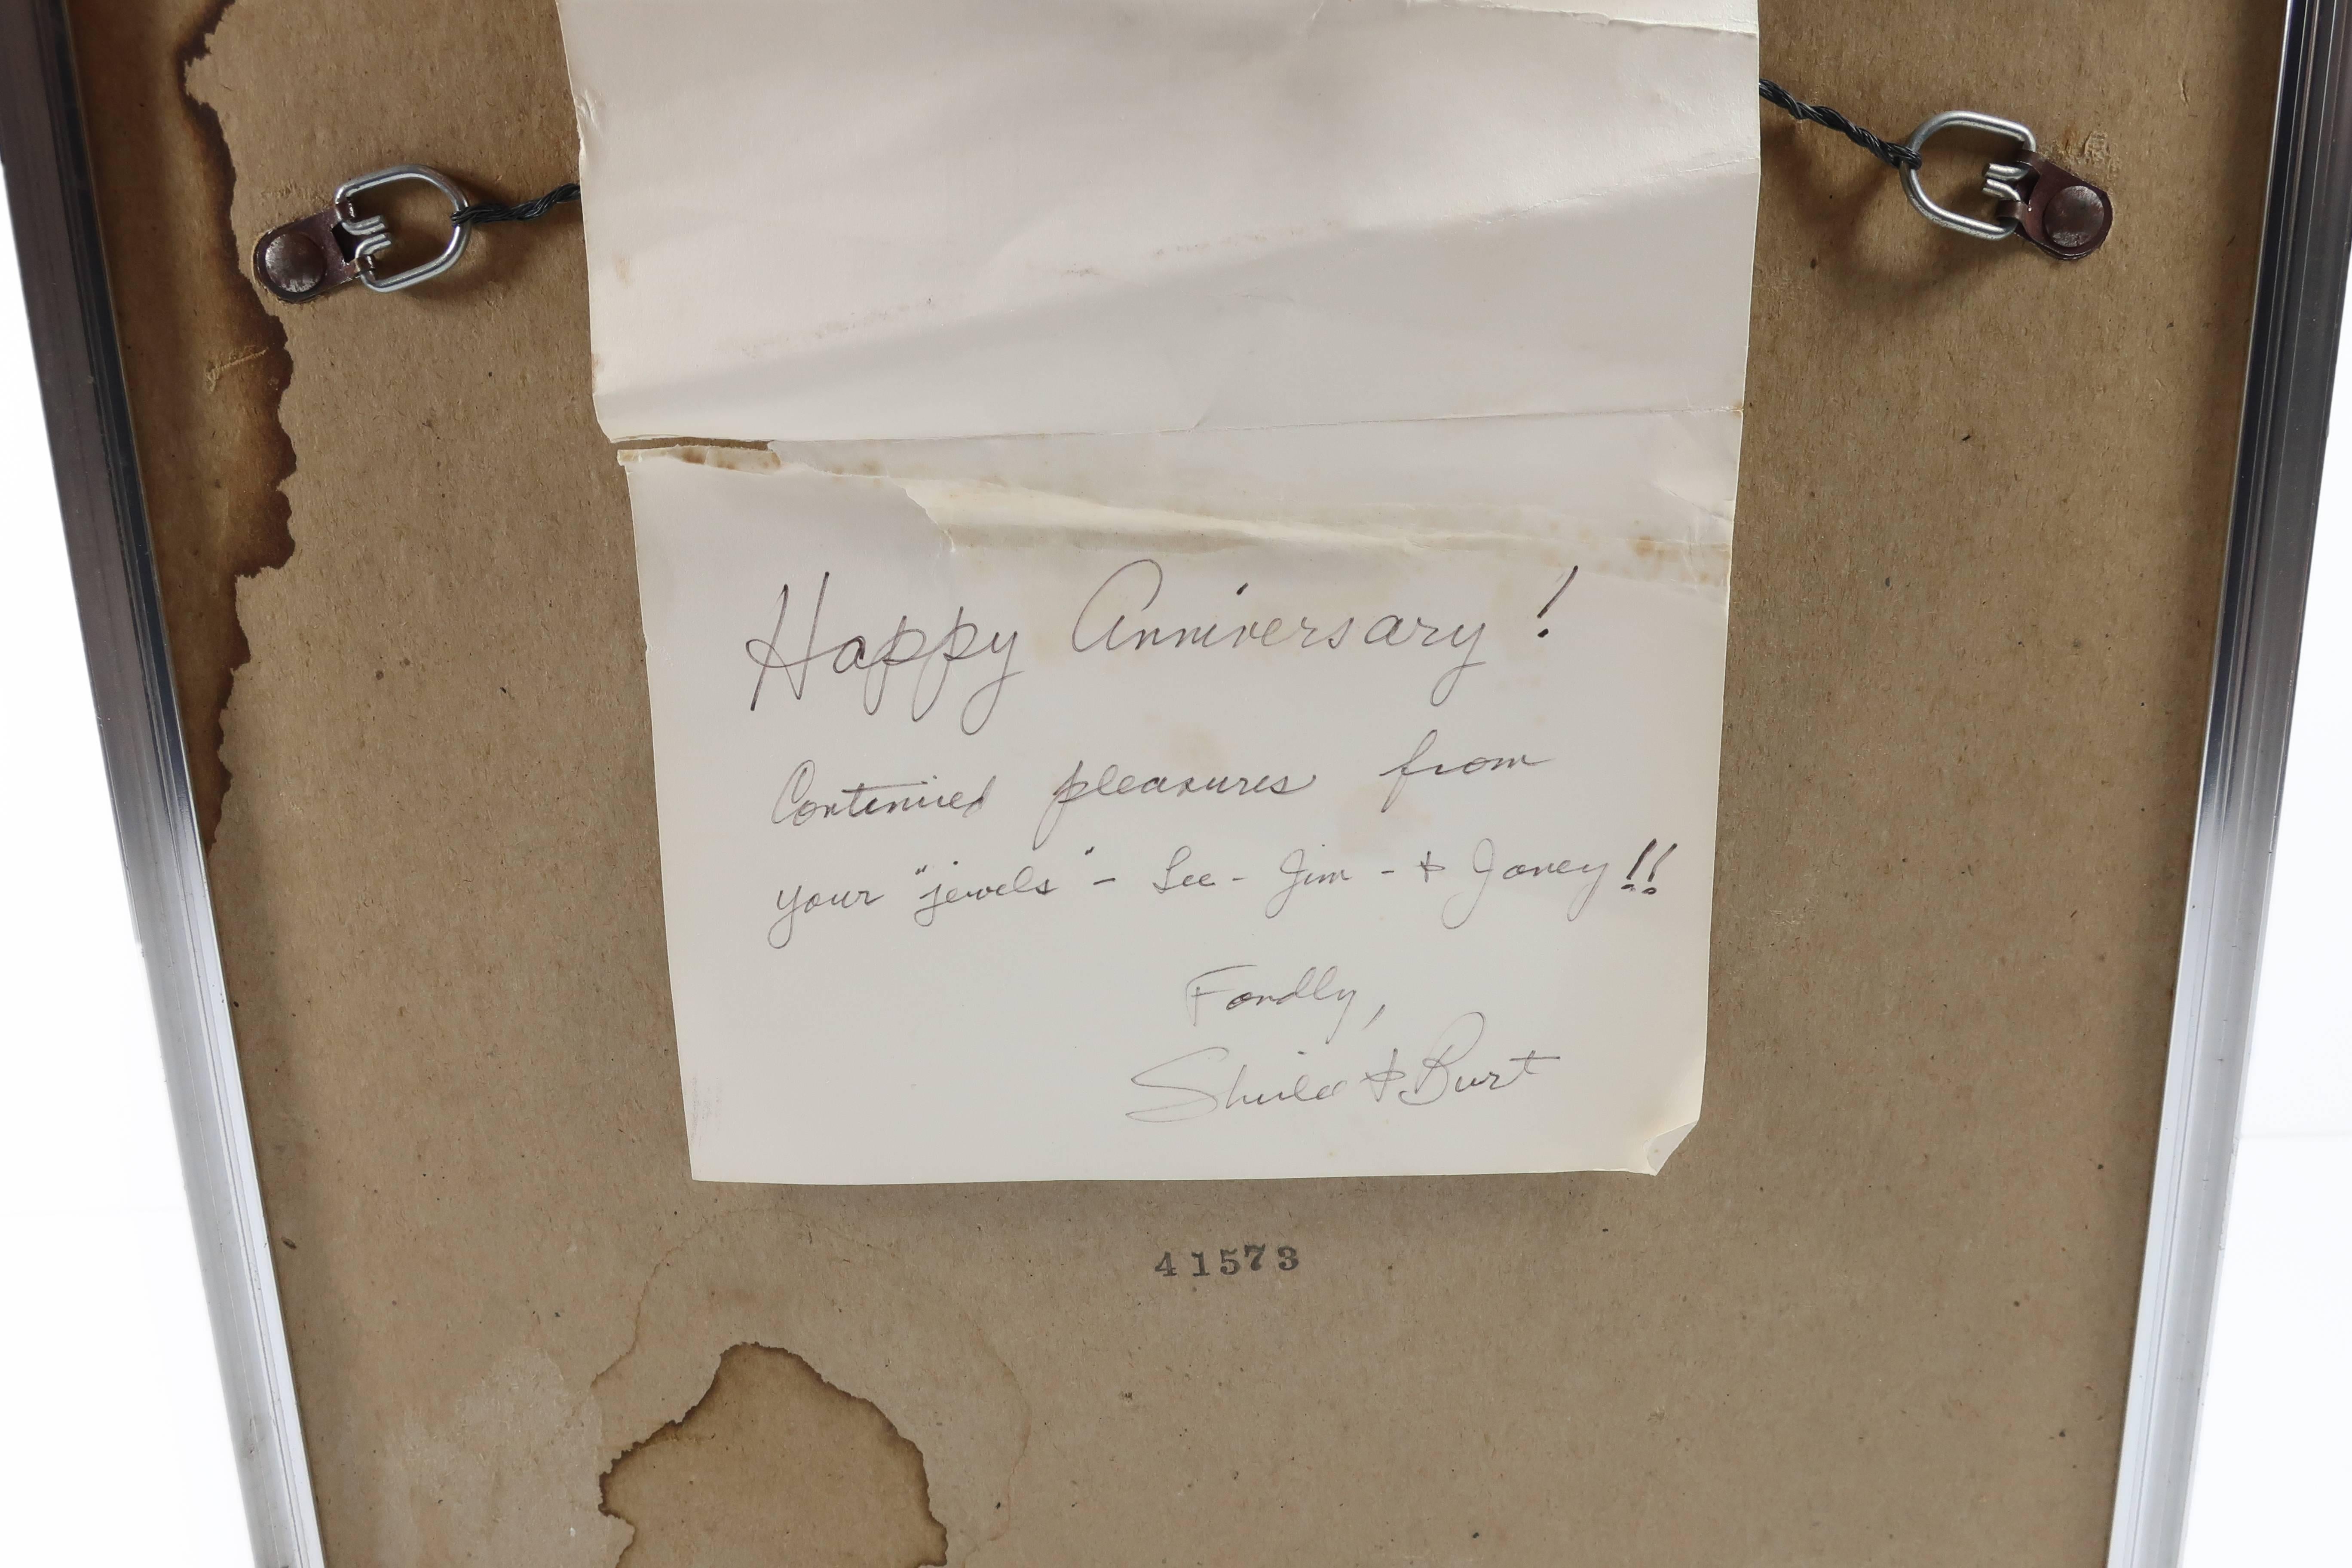 Happy Anniversary!
Continued pleasures from
your "jewels" - Lee - Jim - & Janey!!
Fondly,
Sheila & Burt
41573